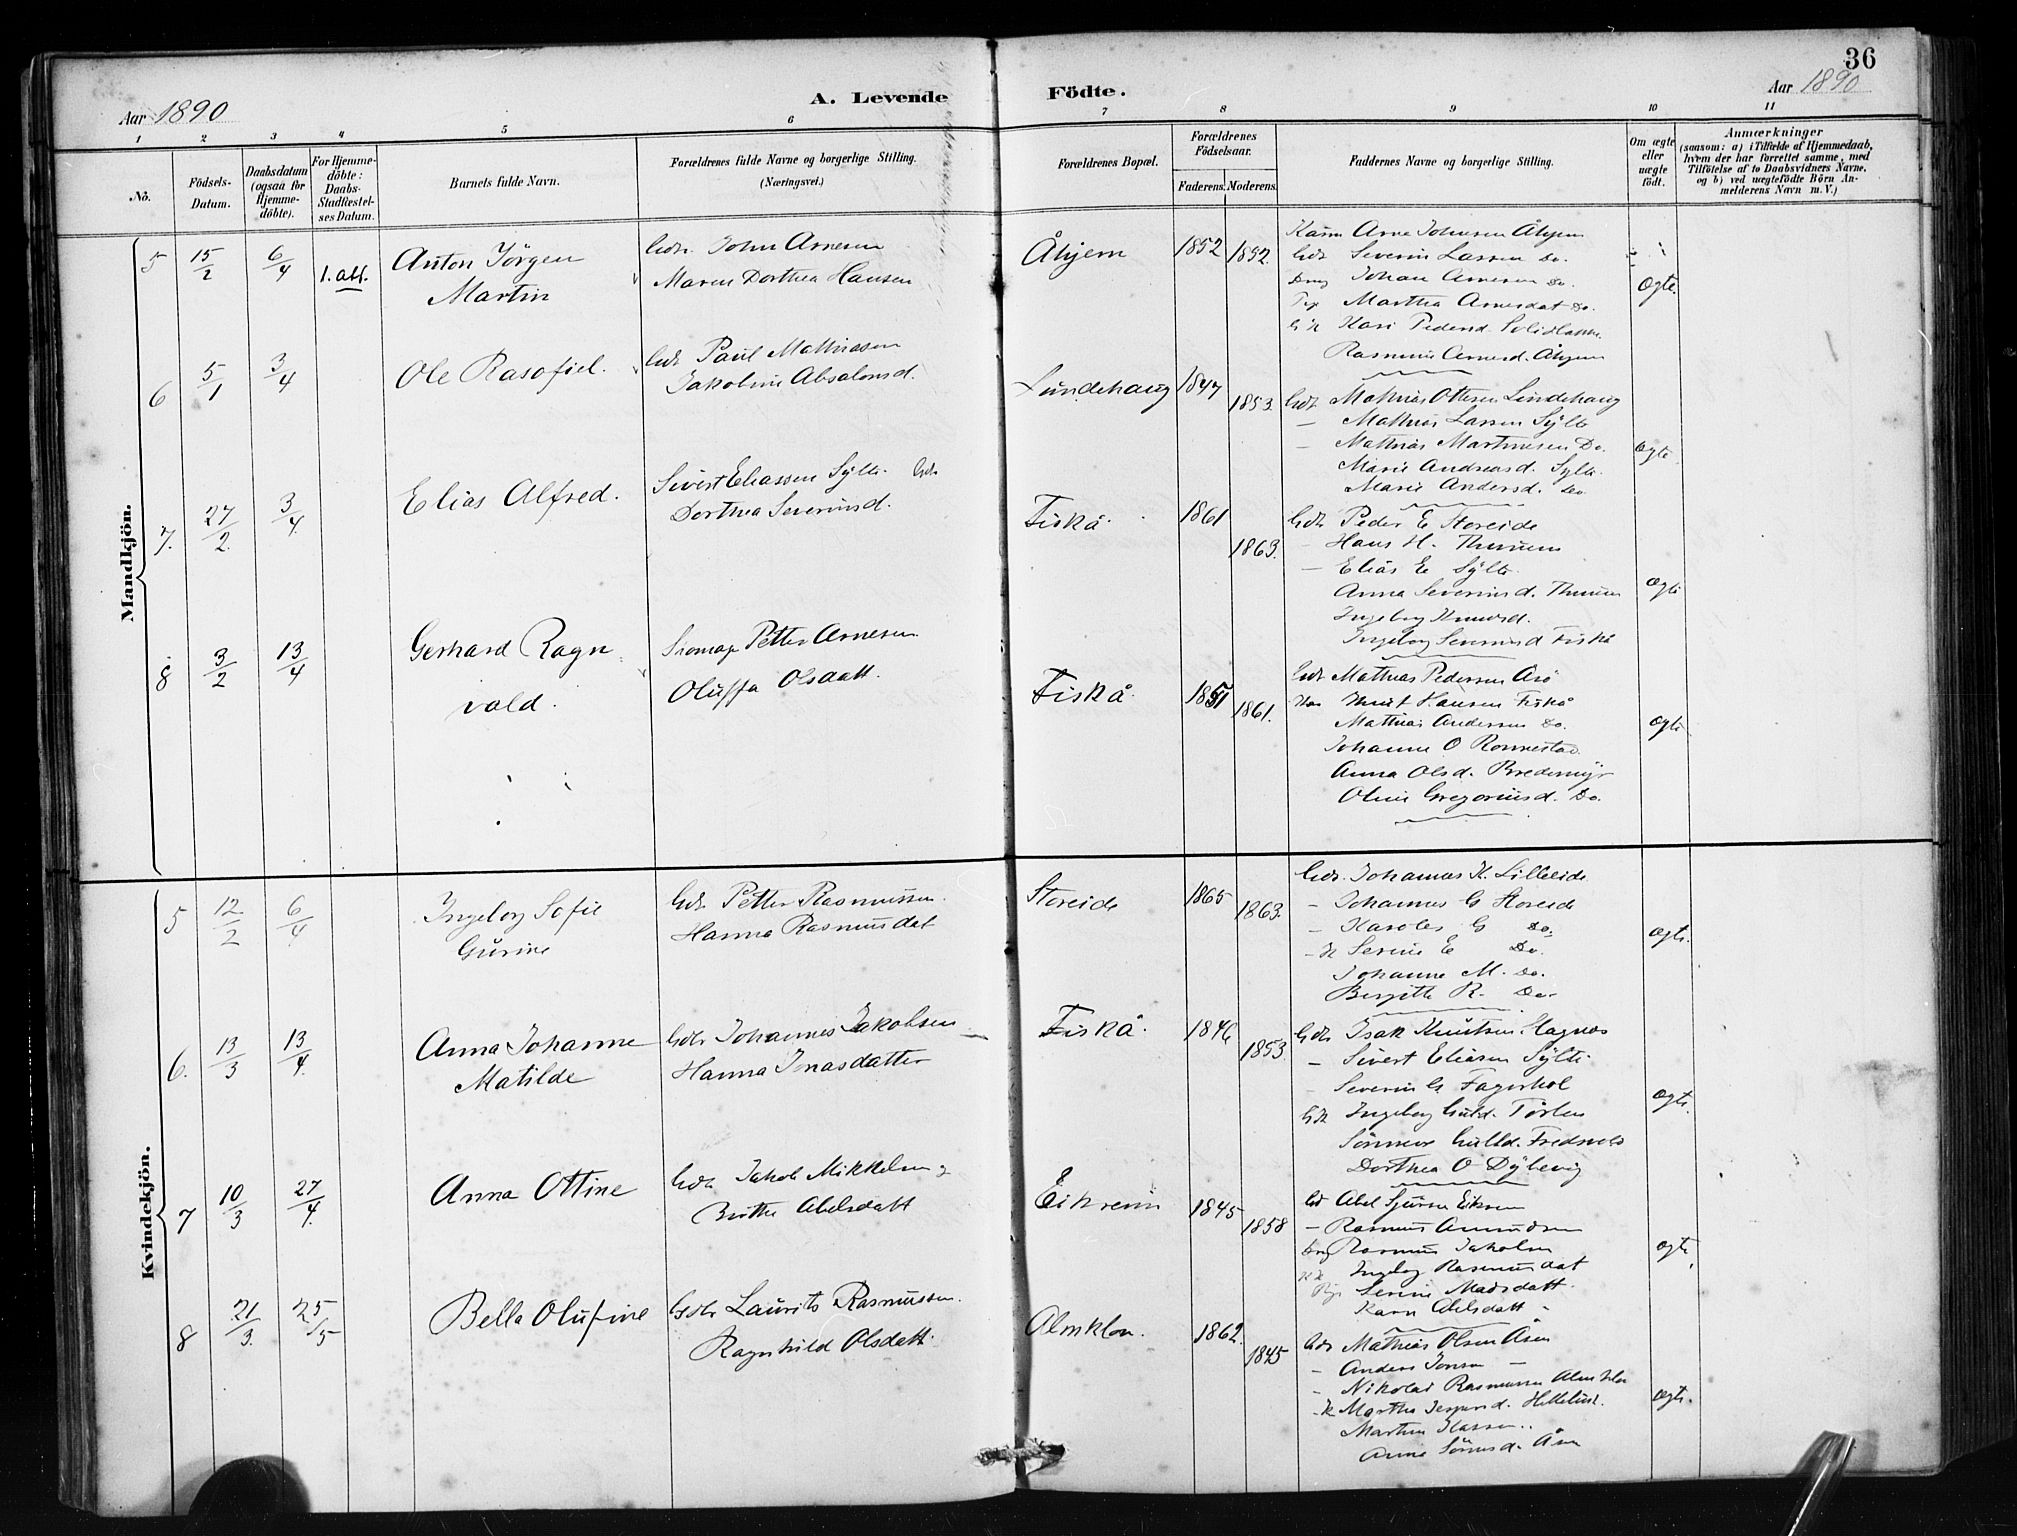 36
Aar 1890
A. Levende
Födte.
Aar 1890
1 2 3 4 5 6 7 8 9 10 11
No.
Födsels-
Datum.
Daabsdatum
(ogsaa for
Hjemme-
döbte).
For Hjemme-
döbte:
Daabs-
Stadfæstel-
ses Datum.
Barnets fulde Navn.
Forældrenes fulde Navne og borgerlige Stilling.
(Næringsvei.)
Forældrenes Bopæl.
Forældrenes
Födselsaar.
Faderens. Moderens.
Faddernes Navne og borgerlige Stilling.
Om ægte
eller
uægte
födt.
Anmærkninger
(saasom: a) i Tilfælde af Hjemmedaab,
hvem der har forrettet samme, med
Tilföielse af to Daabsvidners Navne,
og b) ved uægtefödte Börn An-
melderens Navn m. V.)
Mandkjön.
5 15/2 6/4 1. att.
Anton Jörgen
Martin
Gdr John Arnesen
Maren Dorthea Hansen
Åhjem 1852 1852.
Arne Johnsen Åhjem
Gdr Severin Larsen Do.
Drng Johan Arnesen Do.
Martha Arnesdat Do.
Kari Pedersd.
Rasmine Arnesd. Åhjem
Ægte.
6 5/1 3/4
Ole Rasofiel.
Gdr Paul Mathiasen
Jakobine Absalonsd.
Lundehaug 1847 1853.
Gdr Mathias Ottesen Lundehaug
– Mathias Larsen Sylte
– Mathias Martinusen Do.
Marie Andreasd. Sylte.
Marie Andersd. Do
Ægte
7. 27/2 3/4
Elias Alfred.
Sivert Eliassen Sylte. Gdr
Dorthea Severinsd.
Fiskå. 1861 1863.
Gdr Peder E Storeide
– Hans H. Thunem
– Elias E Sylte
Anna Severinsd. Thunem
Ingeborg Knutsd.
Ingeborg Severinsd Fiskå
Ægte
8 3/2 13/4
Gerhard Ragn
vald.
Petter Arnesen
Oluffa Olsdatt.
Fiskå 1851 1861.
Gdr Mathias Pedersen Arö
Knut Hansen Fiskå
Mathias Andersen Do.
Johanne O Ronnestad
Anna Olsd. Bredemyr
Oline Gregoriusd. Do.
Ægte
Kvindekjön.
5 12/2 6/4
Ingeborg Sofie
Gurine
Gdr Petter Rasmussen.
Hanna Rasmusdat
Storeide 1865 1863.
Gdr. Johannes K. Lilleeide
– Johannes G Storeide
– Karoles G Do.
–K Serine E Do.
Johanne M. Do.
Bergitte R. Do.
Ægte.
6. 13/3 13/4.
Anna Johanne
Matilde
Gdr Johannes Jakobsen
Hanna Jonasdatter
Fiskå. 1846 1853.
Gdr Isak Knutsen Hagnæs
– Sivert Eliasen Sylte
– Severin G. Fagerhol
Ingeborg Guld.
Dorthea O Dybevig
Ægte.
7 10/3 27/4.
Anna Ottine
Gdr Jakob Mikkelsen
Brithe Abelsdatt
Eikrem 1845 1858
Abel Sjursen Eikrem
– Rasmus Amundsen
Drng Rasmus Jakobsen
Ingeborg Rasmusdat
Pige Serine Madsdatt.
Karn Abelsdatt –
Ægte
8 21/3. 25/5
Bella Olufine
Gdbr Laurits Rasmussen.
Ragnhild Olsdatt.
Almklov. 1862 1845
Gdr Mathias Olsen Åsen
– Anders Jonsen –
– Nikolai Rasmussen Almklov
–K Martha Jespersd.
Anne Åsen
Ægte.